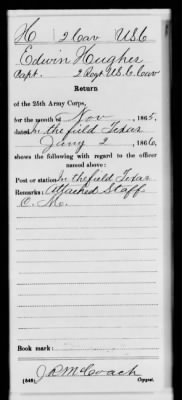 H 2 Cav USC
Edwin Hughes
Capt. 2 Regt U.S.C. Cav
Return
of the 25th Army Corps,
for the month of Nov, 1865,
dated In the field Texas
Jany 2, 1866,
shows the following with regard to the officer
named above:
Post or station: In the field Texas
Remarks: Attached Staff
C. M.
Book mark:
(549) J R McCoach
Copyist.